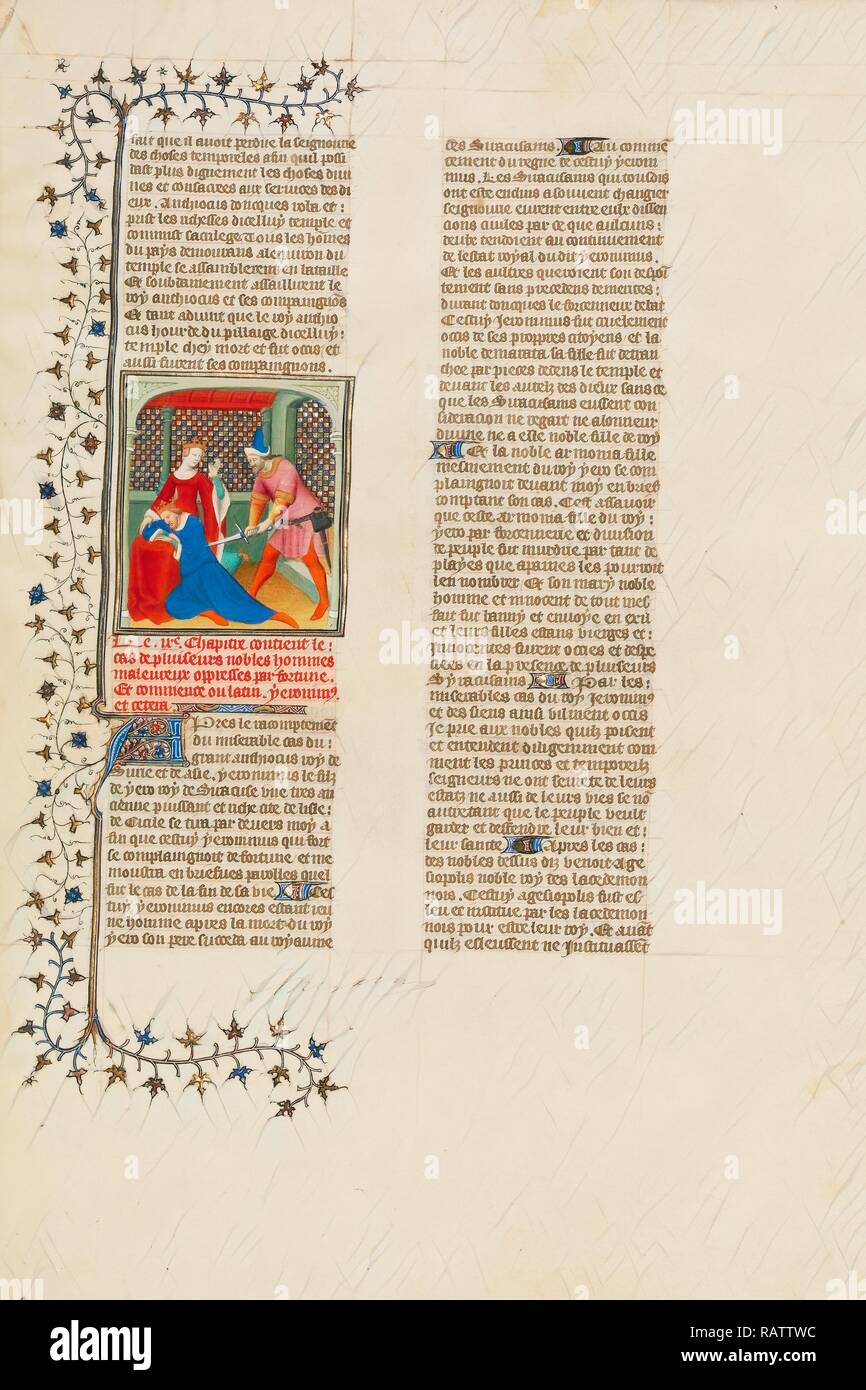 fait que il avoit perdue la seignourie
des choses temporeles afin quil possi
dast plus dignement les choses diui
nes et consacrees aux seruices des di
eux. Anthiocus doncques vola et:
prist les richesses dicelluy temple et
commist sacrilege. Tous les hom̃es
du pays demourans alenuiron du
temple se assamblerent en bataille
Et soubdainement assaillirent le
roy anthiocus et ses compaignõs
Et tant aduint que le roy anthio
cus hourde du pillaige dicelluy:
temple chey mort et fut occis et
aussi furent ses compaignons.
Le .iie. Chapitre contient le:
cas de pluiseurs nobles hommes
maleureux oppresses par fortune.
Et commence ou latin. yeronimus
et cetera.
APres le racomptement
du miserable cas du:
grant anthiocus roy de
Sirie et de asie, yeronimus le filz
de yero roy de Siracuse vne tres an
cienne puissant et riche cite de lisle:
de Cicile se tira par deuers moy a
fin que cestuy yeronimus qui fort
se complaingnoit de fortune et me
moustra en briefues parolles quel
fut le cas de la fin de sa vie Ces
tuy yeronimus encores estant ieu
ne homme apres la mort du roy
yero son pere succeda au royaume
des Siracusains. Au commẽ
cement du regne de cestuy yeroni
mus. Les Siracusains qui tousdis
ont este enclins a souuent changier
seignourie eurent entre eulx dissen
cions ciuiles par ce que aulcuns:
deulx tendoient au continuement
de lestat royal du dit yeronimus.
Et les aultres queroient son despoĩ
tement sans precedens demerites:
durant doncques le forcenneux debat
Cestuy Jeronimus fut cruelement
occis de ses proppres citoyens et la
noble demarata sa fille fut detran
chee par pieces dedens le temple et
deuant les autelz des dieux sans ce
que les Siracusains eussent con
sideracion ne regart ne alonneur
diuine ne a elle noble fille de roy
Et la noble armonia fille
mesmement du roy yero se com
plaingnoit deuant moy en brief
comptant son cas. Cest assauoir
que ceste armonia fille du roy:
yero par forcennerie et diuision
de peuple fut murdrie par tant de
playes que apaines les pourroit
len nombrer Et son mary noble
homme et innocent de tout mes
fait fut banny et enuoye en exil
et leurs filles estans vierges et:
Innocentes furent occies et despe
cies en la presence de pluiseurs
Syracusains Par les:
miserables cas du roy Jeronimus
et des siens ainsi vilment occis
Je prie aux nobles quilz poisent
et entendent diligemment com
ment les princes et temporelz
seigneurs ne ont seurte de leurs
estatz ne aussi de leurs vies se nõ
autretant que le peuple veult
garder et deffendre leur bien et:
leur sante Apres les cas:
des nobles dessus diz venoit age
siopolis noble roy des lacedemon
nois. Cestuy agesiopolis fust es
leu et institue par les lacedemon
nois pour estre leur roy. Et auãt
quilz esleussent ne Instituassent
alamy
alamy
alamy
alamy
Image ID: RATTWC
www.alamy.com